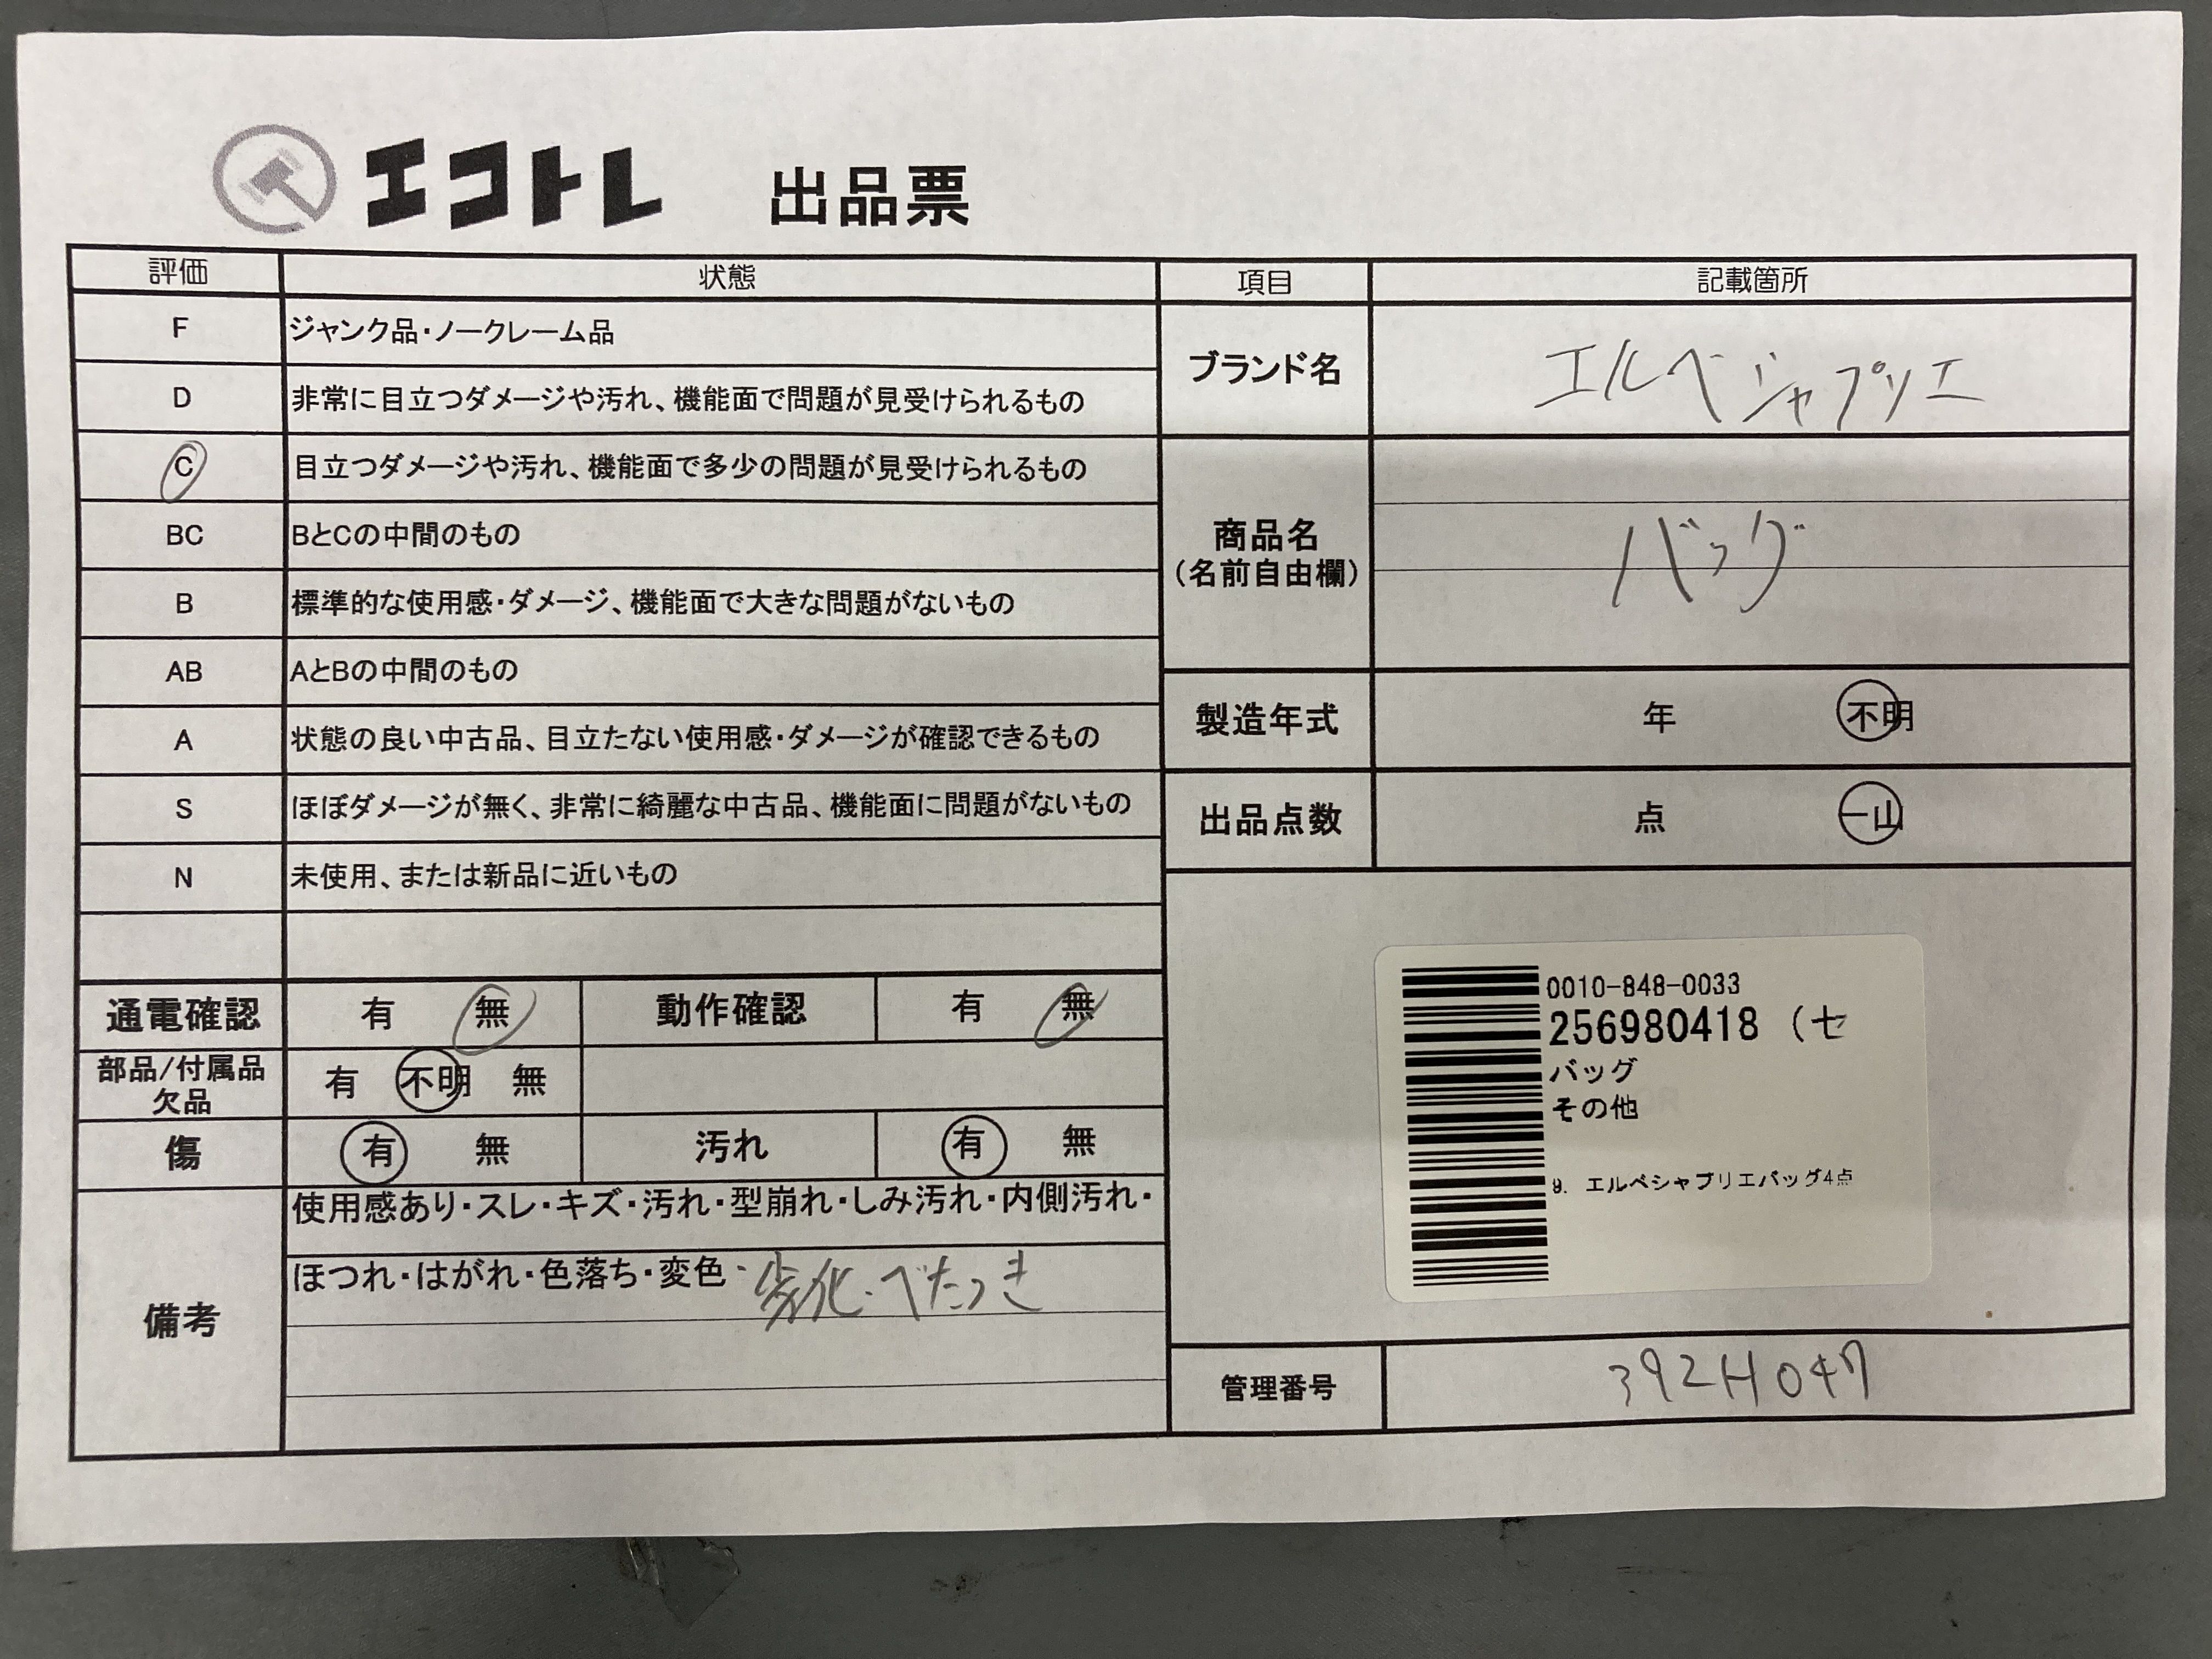 エコトレ 出品票
評価 状態
F ジャンク品・ノークレーム品
D 非常に目立つダメージや汚れ、機能面で問題が見受けられるもの
C 目立つダメージや汚れ、機能面で多少の問題が見受けられるもの
BC BとCの中間のもの
B 標準的な使用感・ダメージ、機能面で大きな問題がないもの
AB AとBの中間のもの
A 状態の良い中古品、目立たない使用感・ダメージが確認できるもの
S ほぼダメージが無く、非常に綺麗な中古品、機能面に問題がないもの
N 未使用、または新品に近いもの
通電確認 有 無 動作確認 有 無
部品/付属品
欠品
有 不明 無
傷 有 無 汚れ 有 無
備考
使用感あり・スレ・キズ・汚れ・型崩れ・しみ汚れ・内側汚れ・
ほつれ・はがれ・色落ち・変色・劣化・べたつき
項目 記載箇所
ブランド名 エルベシャプリエ
商品名
(名前自由欄)
バッグ
製造年式 年 不明
出品点数 点 一山
0010-848-0033
256980418 (セ
バッグ
その他
9. エルベシャプリエバッグ4点
管理番号 392H047